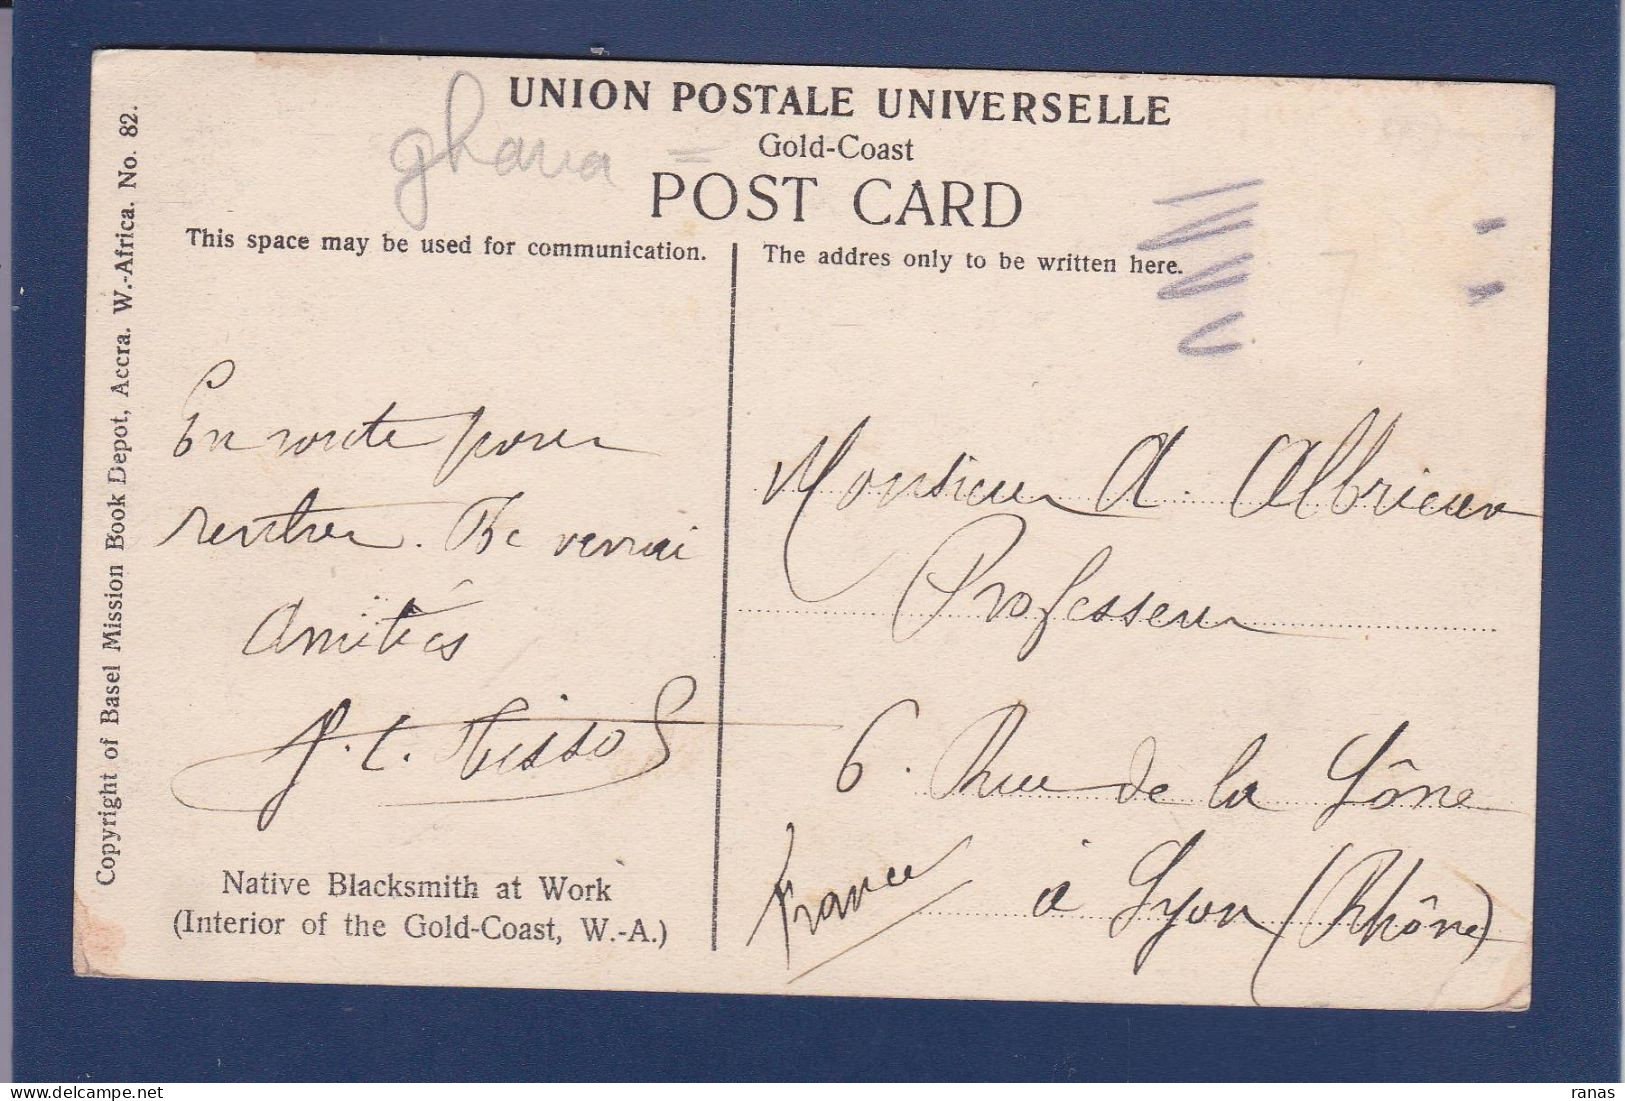 UNION POSTALE UNIVERSELLE
ghana =
Gold-Coast
POST CARD
This space may be used for communication.
The addres only to be written here.
Copyright of Basel Mission Book Depot, Accra. W.-Africa. No. 82.
En route pour
rentrer. Te verrai
Amitiés
J. C. Tissot
Native Blacksmith at Work
(Interior of the Gold-Coast, W.-A.)
Monsieur A. Albrieux
Professeur
6. Rue de la Sône
à Lyon (Rhône)
France
ranas